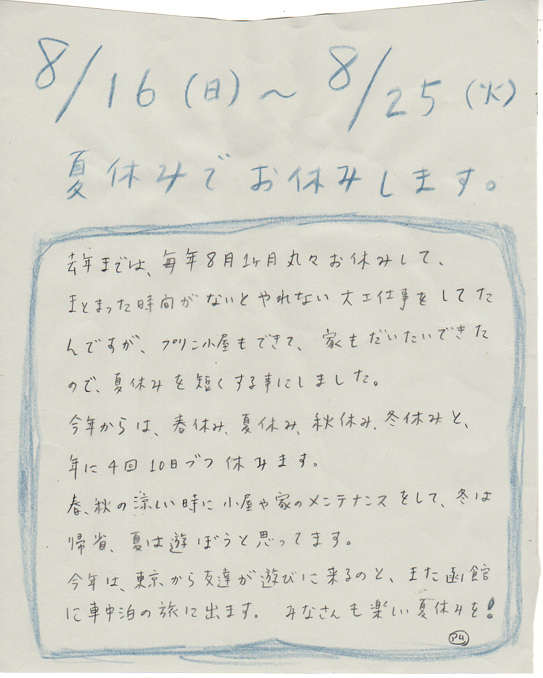 8/16(日)～8/25(火)
夏休みでお休みします。
去年までは、毎年8月1ヶ月丸々お休みして、
まとまった時間がないとやれない大工仕事をしてた
んですが、プリン小屋もできて、家もだいたいできた
ので、夏休みを短くする事にしました。
今年からは、春休み、夏休み、秋休み、冬休みと、
年に4回10日ヅツ休みます。
春、秋の涼しい時に小屋や家のメンテナンスをして、冬は
帰省、夏は遊ぼうと思ってます。
今年は、東京から友達が遊びに来るのと、また函館
に車中泊の旅に出ます。 みなさんも楽しい夏休みを!